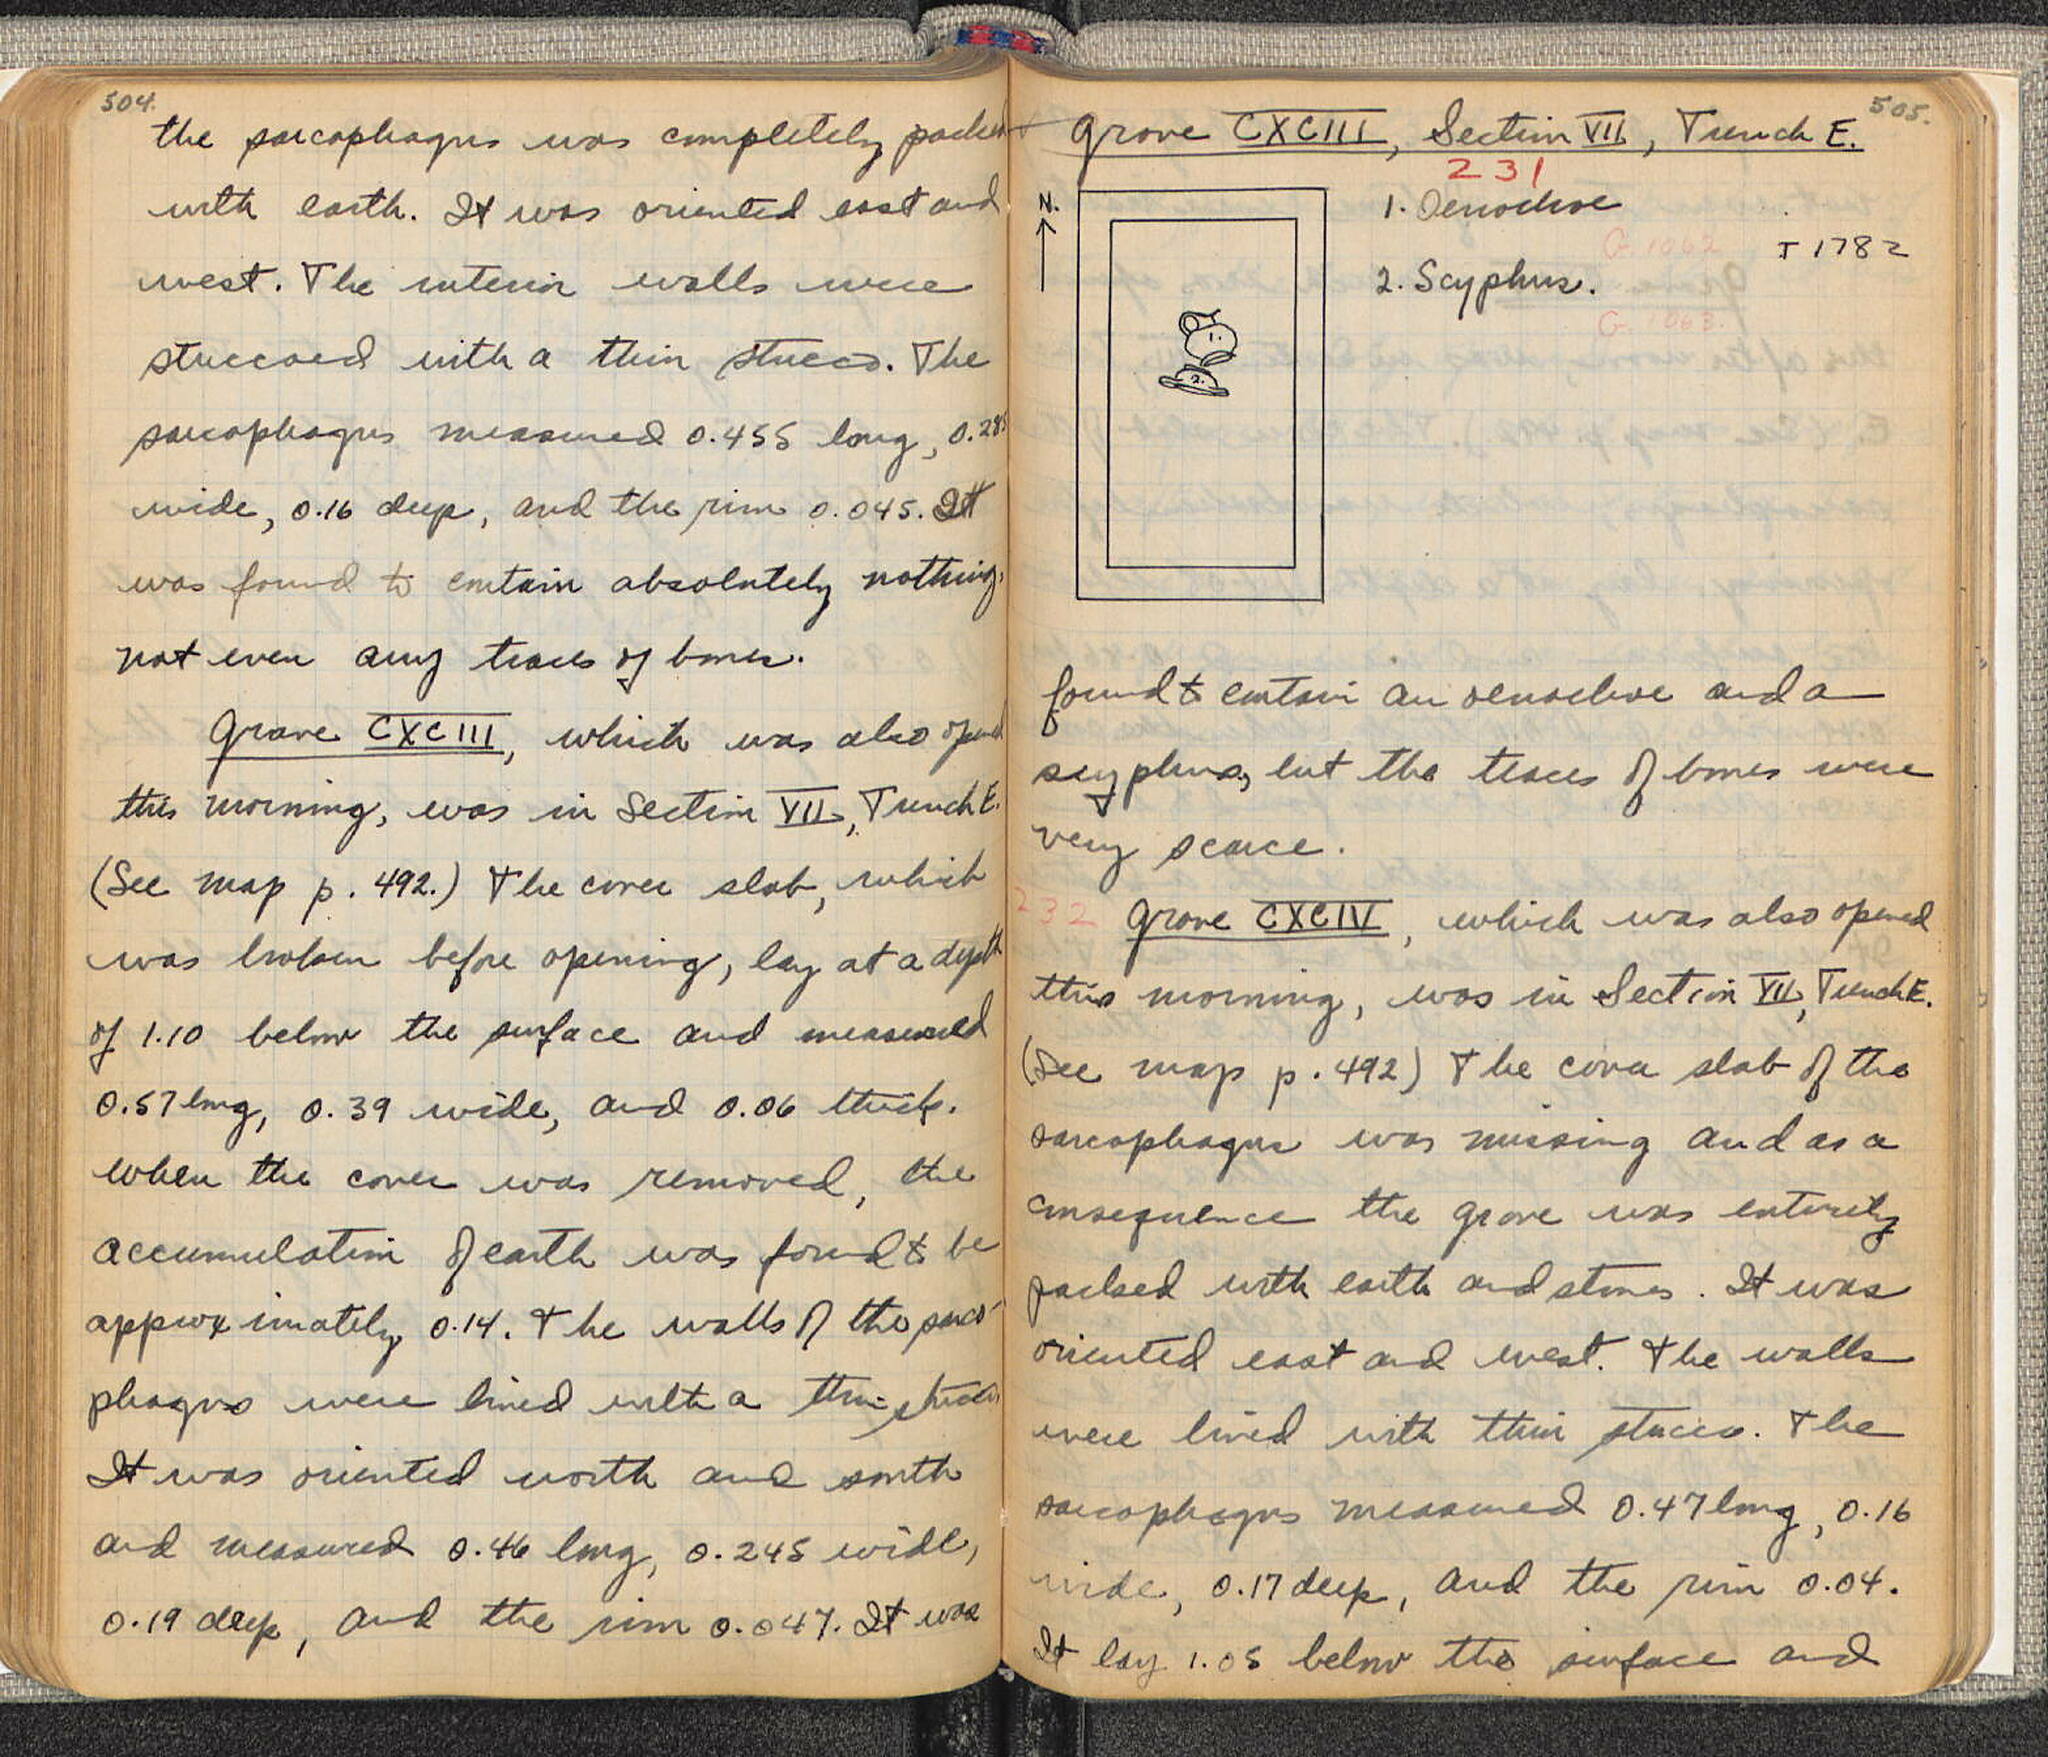 504.
the sarcophagus was completely packed
with earth. It was oriented east and
west. The interior walls were
stuccoed with a thin stucco. The
sarcophagus measured 0.455 long, 0.285
wide, 0.16 deep, and the rim 0.045. It
was found to contain absolutely nothing,
not even any traces of bones.
Grave CXCIII, which was also opened
this morning, was in Section VII, Trench E.
(See map p. 492.) The cover slab, which
was broken before opening, lay at a depth
of 1.10 below the surface and measured
0.57 long, 0.39 wide, and 0.06 thick.
When the cover was removed, the
accumulation of earth was found to be
approximately 0.14. The walls of the sarco-
phagus were lined with a thin stucco.
It was oriented north and south
and measured 0.46 long, 0.245 wide,
0.19 deep, and the rim 0.047. It was
505.
Grave CXCIII, Section VII, Trench E.
231
N.
1. Oenochoe
G. 1062
T 1782
2. Scyphus.
G. 1063.
1.
2.
found to contain an oenochoe and a
scyphus, but the traces of bones were
very scarce.
232 Grave CXCIV, which was also opened
this morning, was in Section VII, Trench E.
(See map p. 492) The cover slab of the
sarcophagus was missing and as a
consequence the grave was entirely
packed with earth and stones. It was
oriented east and west. The walls
were lined with thin stucco. The
sarcophagus measured 0.47 long, 0.16
wide, 0.17 deep, and the rim 0.04.
It lay 1.05 below the surface and